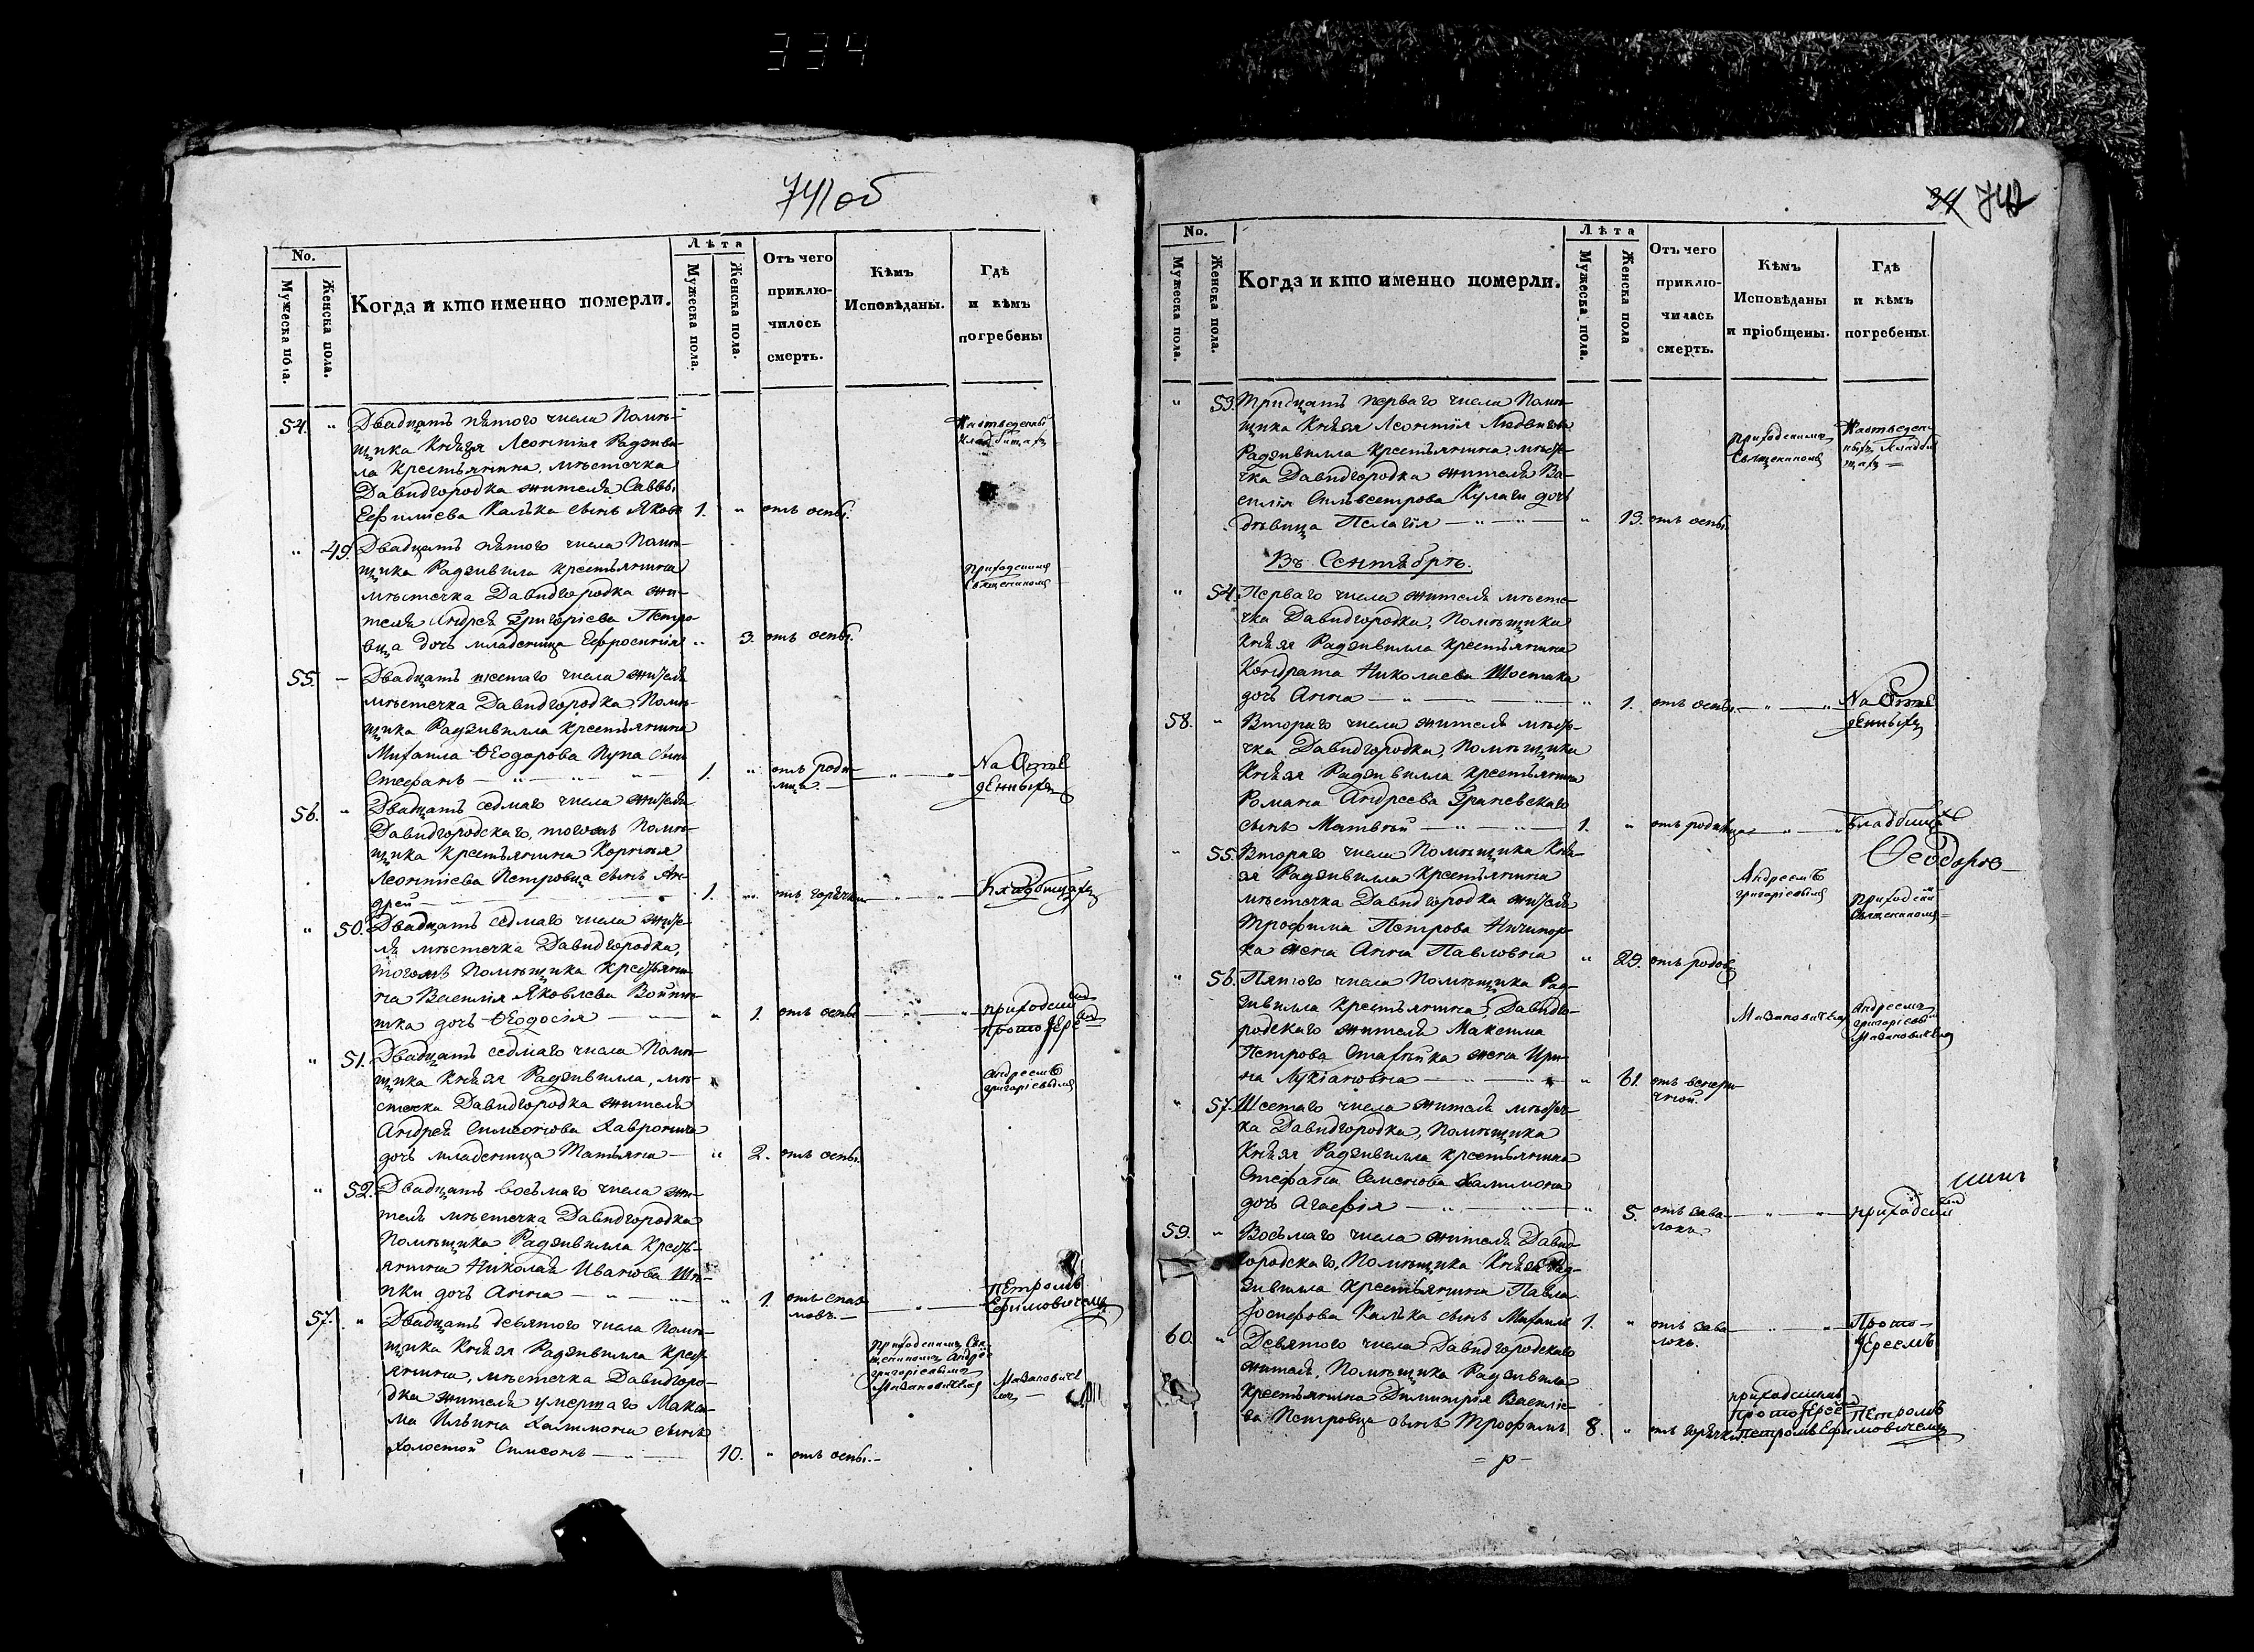 334
741об
No.
Мужеска пола.
Женска пола.
Когда и кто именно померли.
Лѣта
Мужеска пола.
Женска пола.
Отъ чего
приклю-
чилось
смерть.
Кѣмъ
Исповѣданы.
Гдѣ
и кѣмъ
погребены
54. " Двадцать пятого числа Помѣ-
щика Князя Леонтія Радзиви-
ла Крестьянина, мѣстечка
Давидгородка жителя Саввы
Калька сынъ Яковъ 1. " отъ оспы.
" 49. Двадцать пятого числа Помѣ-
щика Радзивила крестьянина
мѣстечка Давидгородка жи-
теля Андрея Григоріева Петро
вца дочь младеница Ефросинія " 3. отъ оспы.
приходскимъ
Священикомъ
55. – Двадцать шестаго числа жителя
мѣстечка Давидгородка, Помѣ-
щика Радзивилла крестьянина
Михаила Ѳеодорова Пупа сынъ
Стефанъ — " — " — 1. " отъ роди-
мца. — " — " — На Отве
денныхъ
56. " Двадцать седмаго числа жителя
Давидгородскаго, тогожъ Помѣ-
щика крестьянина Корнѣя
Леонтіева Петровца сынъ Ан-
дрей — 1. " отъ горячки — " — " — Кладбищахъ
" 50. Двадцать седмаго числа жите-
ля мѣстечка Давидгородка,
тогожъ Помѣщика крестьяни-
на Василія Яковлева
дочь Ѳеодосія — " — " 1. отъ оспы — " — приходским
Протоіере
" 51. Двадцать седмаго числа Помѣ-
щика Князя Радзивилла, мѣ-
стечка Давидгородка жителя
Андрея Симеонова Лавронича
дочь младеница Татьяна — " 2. отъ оспы.
Андреемъ
Григоріевымъ
" 52. Двадцать восьмаго числа жи-
теля мѣстечка Давидгородка
Помѣщика Радзивилла кресть-
янина Николая Иванова
дочь Анна — " — " — " 1. отъ спаз-
мовъ. — " — Петромъ
Ефимовичемъ
57. " Двадцать девятого числа Помѣ-
щика Князя Радзивилла крест-
янина, мѣстечка Давидгоро-
дка жителя умершаго Макси-
ма Ильина Халимона сынъ
холостой Симеонъ — " — 10. " отъ оспы. –
приходскимъ Свя-
щеникомъ Андрее
Григоріевымъ
Мазановичемъ
Мазанович
емъ —
742
No.
Мужеска пола.
Женска пола.
Когда и кто именно померли.
Лѣта
Мужеска пола.
Женска пола
Отъ чего
приклю-
чилась
смерть.
Кѣмъ
Исповѣданы
и пріобщены.
Гдѣ
и кѣмъ
погребены.
" 53. Тридцать перваго числа Помѣ-
щика Князя Леонтія Людвигова
Радзивилла Крестьянина, мѣсте-
чка Давидгородка жителя Ва-
силія Сильвестрова Кулаги дочь
дѣвица Пелагія — " — " — " 13. отъ оспы.
приходскимъ
Священикомъ
На отведен-
ныхъ Кладби
щахъ —
Въ Сентябрѣ.
" 54. Перваго числа жителя мѣсте-
чка Давидгородка, Помѣщика
Князя Радзивилла крестьянина
Кондрата Николаева Шостака
дочь Анна — " — " 1. отъ оспы. — " — " — На Отве
денныхъ
58. " Втораго числа жителя мѣсте-
чка Давидгородка, Помѣщика
Князя Радзивилла крестьянина
Романа Андреева Гриневскаго
сынъ Матвѣй — " — 1. " отъ родимца — " — " Кладбищахъ
" 55. Втораго числа Помѣщика Кня-
зя Радзивилла Крестьянина
мѣстечка Давидгородка жителя
Трофима Петрова Ничипор-
ка жена Анна Павловна " 29. отъ родов.
Андреемъ
Григоріевымъ
приходски
Священикомъ
" 56. Пятого числа Помѣщика Рад-
зивилла Крестьянина, Давидго-
родскаго жителя Максима
Петрова жена Ири-
на Лукіановна — " — " 61.
Мазановичемъ
Андреемъ
Григоріевы
Мазановичемъ
" 57. Шестаго числа жителя мѣстеч-
ка Давидгородка, Помѣщика
Князя Радзивилла крестьянина
Стефана Семенова Халимона
дочь Агафія — " — " 5. отъ зава-
локъ. — " — " — приходским
59. " Восьмаго числа жителя Давид-
городскаго, Помѣщика Князя Рад-
зивилла крестьянина Павла
Іосифова Калька сынъ Михаилъ 1. " отъ зава-
локъ. — " — " Прото-
іереемъ
60. " Девятого числа Давидгородскаго
жителя, Помѣщика Радзивила
Крестьянина Димитрія Василіе-
ва Петровца сынъ Трофимъ 8. " отъ горячки
приходскимъ
Протоіерее
Петромъ Ефимовичемъ
Петромъ